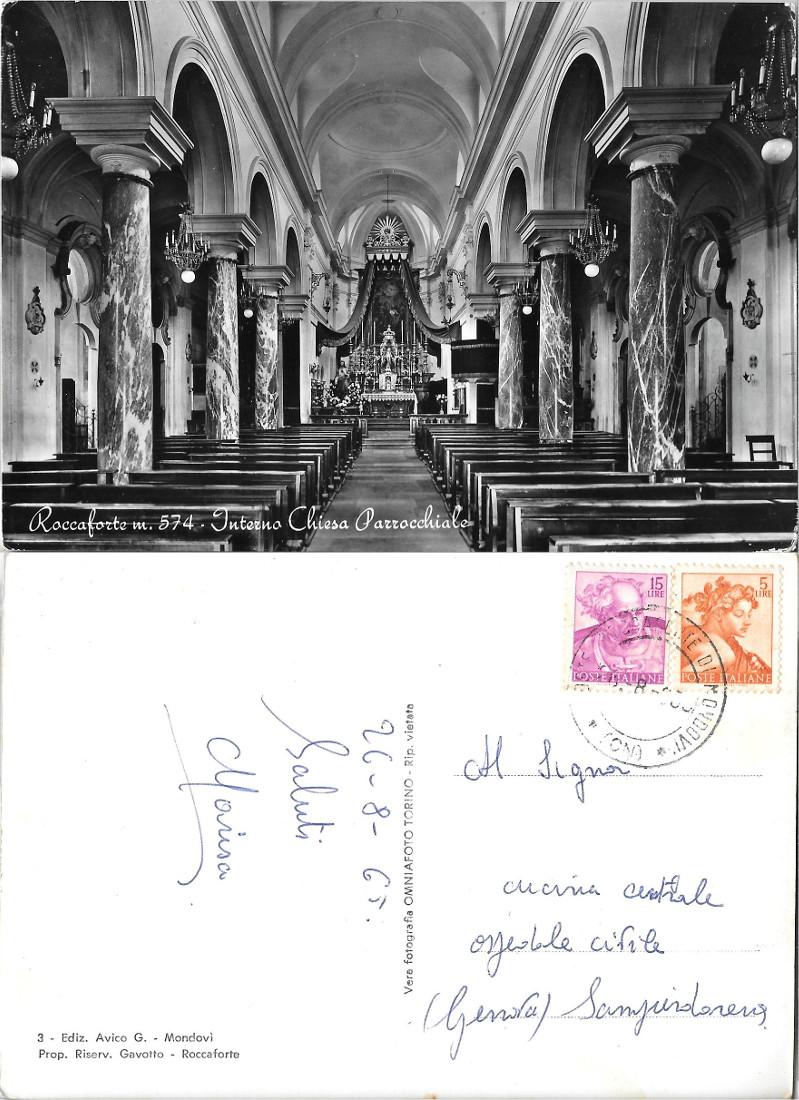 Roccaforte m. 574 - Interno Chiesa Parrocchiale
15
LIRE
POSTE ITALIANE
5
LIRE
POSTE ITALIANE
DI MONDOVI' * (CN) *
26-8-65.
Saluti
Marisa
Vera fotografia OMNIAFOTO TORINO - Rip. vietata
Al Signor
cucina centrale
ospedale civile
(Genova) Sampierdarena
3 - Ediz. Avico G. - Mondovì
Prop. Riserv. Gavotto - Roccaforte